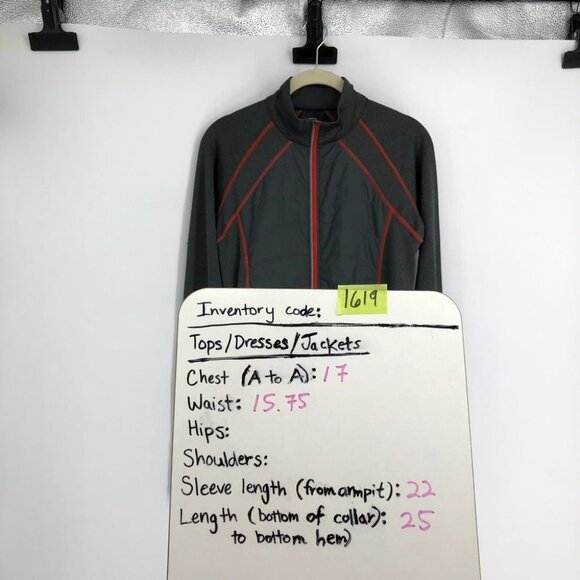 Inventory code: 1619
Tops/Dresses/Jackets
Chest (A to A): 17
Waist: 15.75
Hips:
Shoulders:
Sleeve length (from armpit): 22
Length (bottom of collar): 25
to bottom hem)